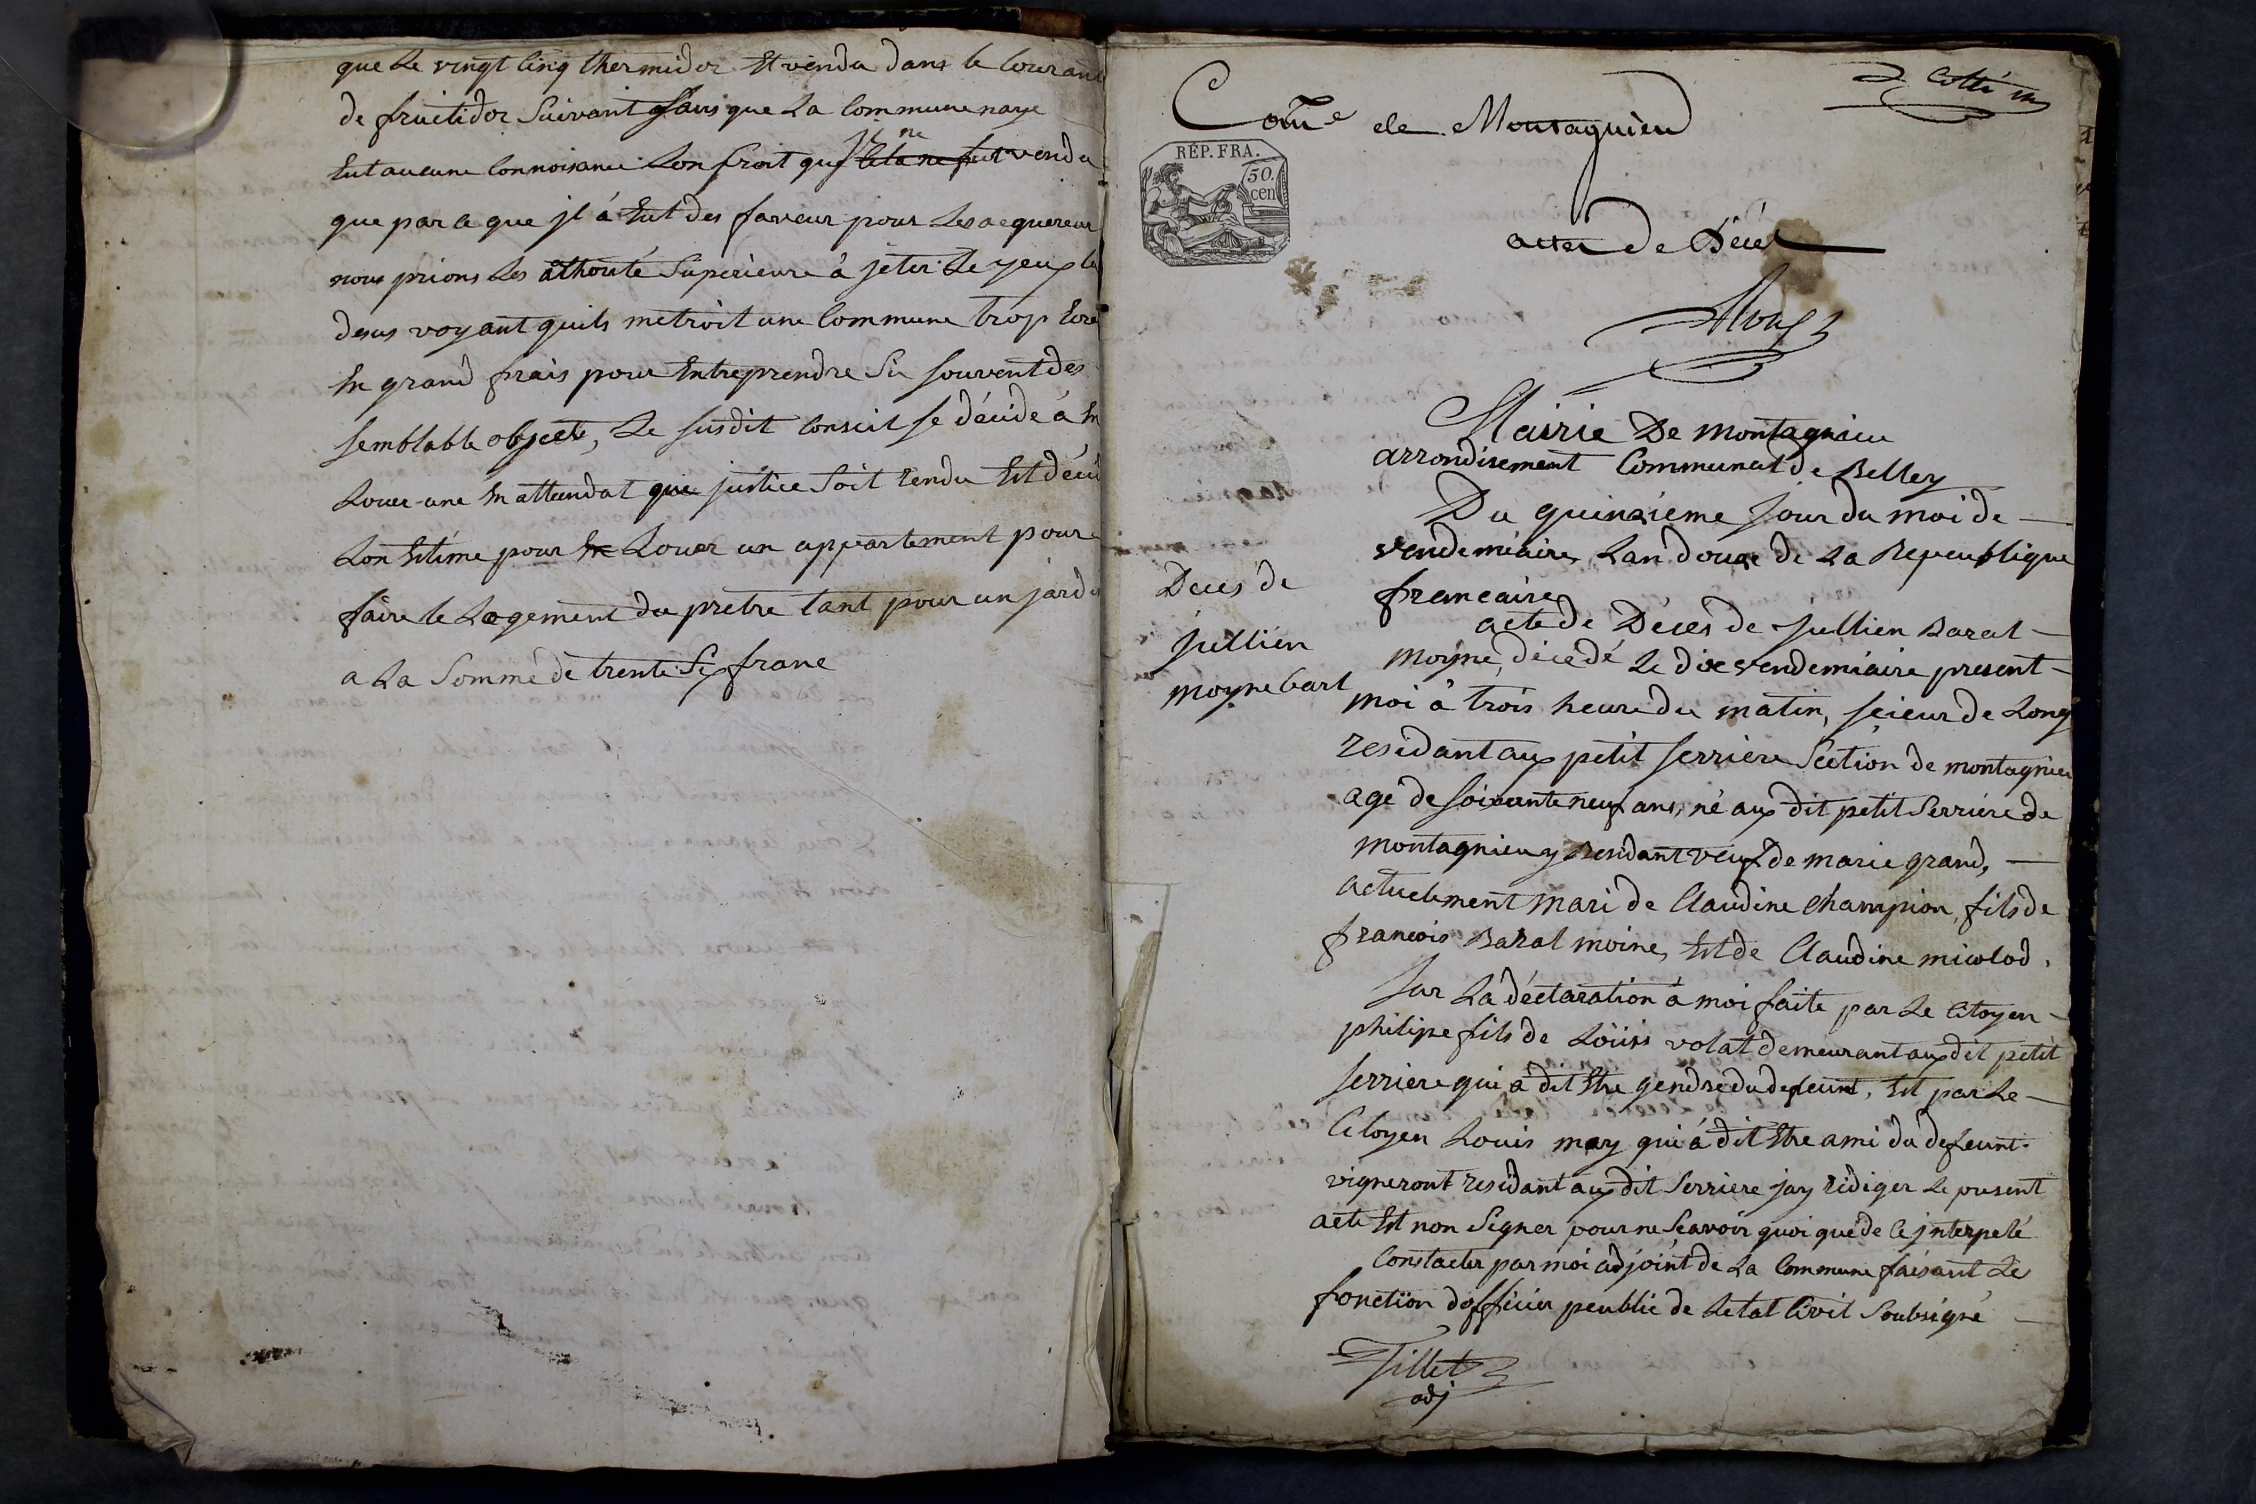 que Le vingt Cinq thermidor Et vendu dans le Courant
de fructidor Suivant sans que La Commune naye
Eut aucune Connoisance Lon croit que cela ne fut vendu
jl ne
que par ce que jl á Eut des faveur pour Les acquereur
nous prions Les athorité Superieure á jeter Le yeux la
desus voyant quils metroit une Commune trop
En grand frais pour Entreprendre Si souvent des
semblable objects, Le susdit conseil se décide á En
Louer une En attendat que justice Soit rendu Est
Lon Estime pour En Louer un appartement pour
faire le Logement du pretre tant pour un jardin
a La Somme de trente Six franc
Cotté
Comne de Montagnieu
RÉP. FRA.
50.
cen
actes de Décés
Mairie De montagnieu
arrondisement Communal de Belley
Du quinziéme Jour du moi de
vendemiaire Lan douze de La Repeublique
francaise
Deces de
jullien
moyne barl
acte de Déces de Jullien Baral
Moyne, décedé Le dix vendemiaire present
moi á trois heure du matin, scieur de Long
residant aux petit serriere Séction de montagnieu
age de soixante neuf ans, né aux dit petit Serriere de
montagnieu y Residant veuf de marie grand,
actuelement mari de Claudine Champion, fils de
francois Baral moine, Est de Claudine micolod.
sur La déclaration á moi faite par Le Citoyen
philipe fils de Loüis volat demeurant aux dit petit
serriere qui á dit Etre gendre du defeunt, Est par Le
Citoyen Louis may qui á dit Etre ami du defeunt
vigneront residant aux dit Serriere jay rediger Le present
acte Est non Signer pour ne Scavoir quoi que de Ce jnterpelé
Constater par moi adjoint de La Commune faisant Les
fonction dofficier peublic de Letat Civil Soubsigné
Tillet
adj